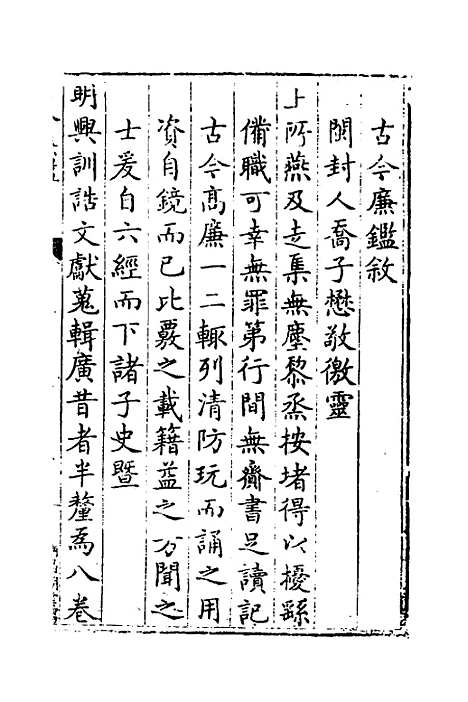 古今廉鑑敘
關封人喬子懋敬徼靈
上所燕及走集無塵黎烝按堵得以擾繇
備職可幸無罪第行間無齎書足讀記
古今高廉一二輙列清防玩而誦之用
資自鏡而已比覈之載籍益之方聞之
士爰自六經而下諸子史暨
明興訓誥文獻蒐輯廣昔者半釐為八卷